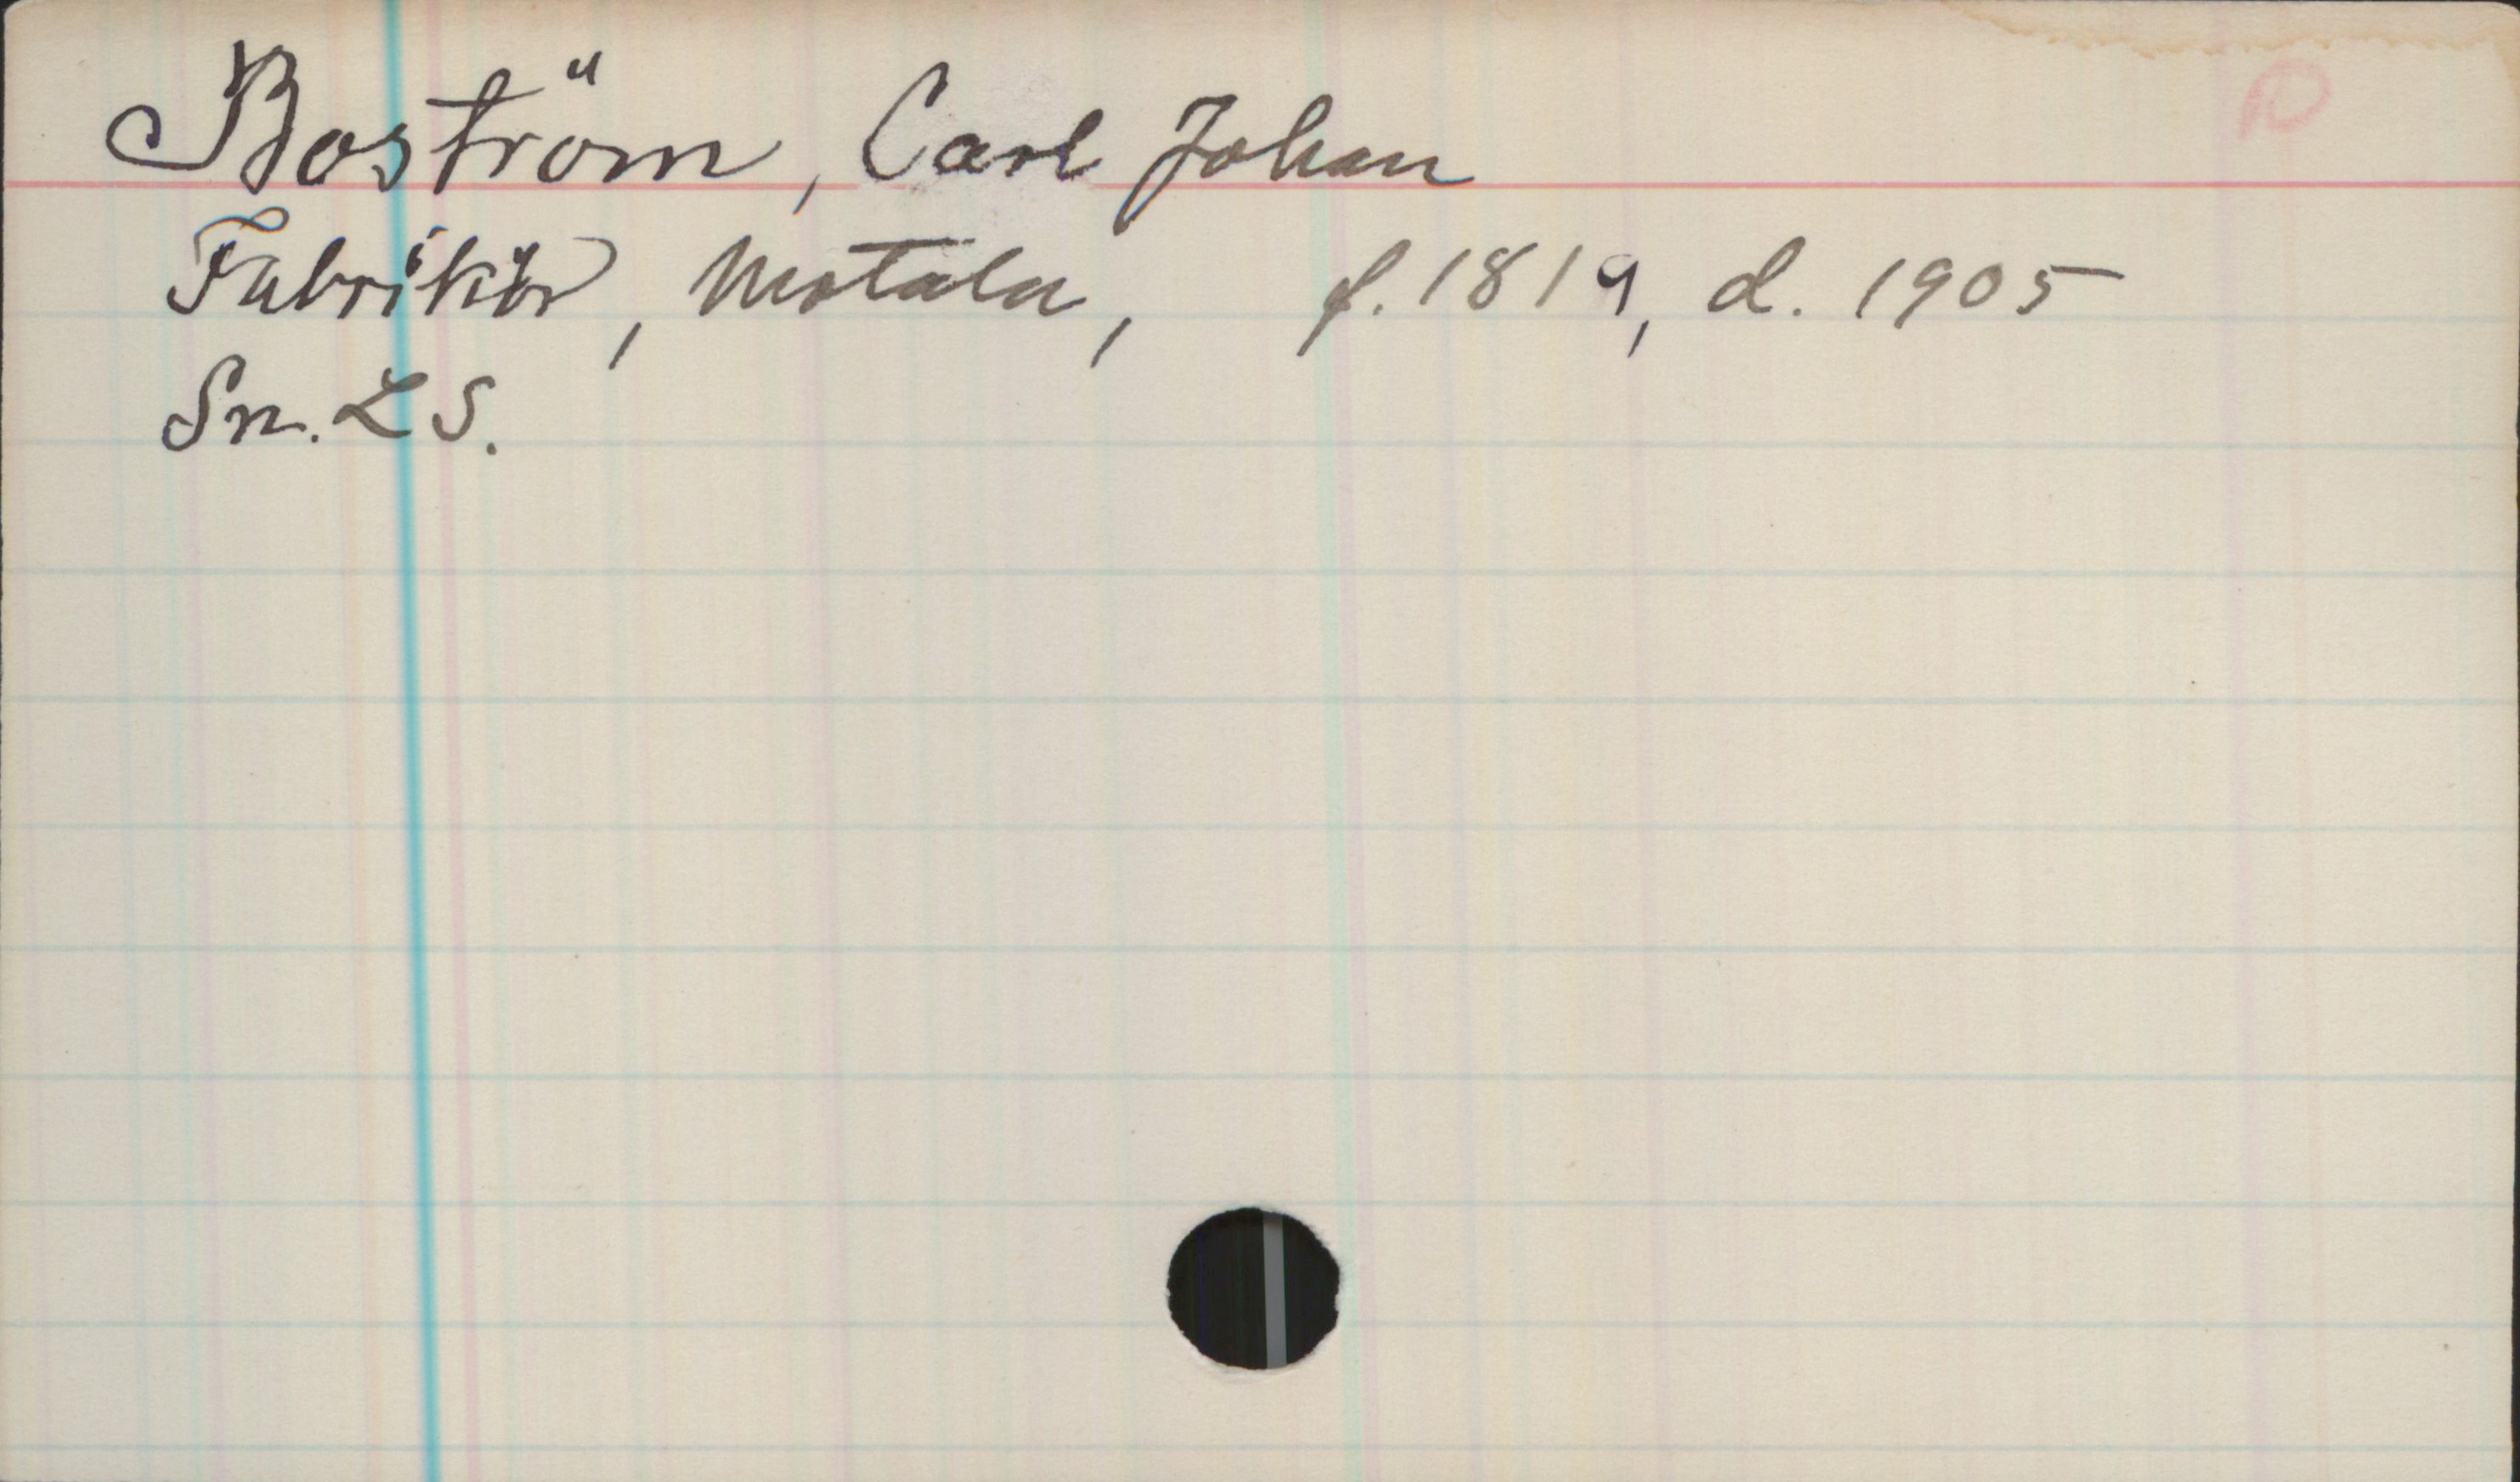 Boström, Carl Johan
Fabrikör, Motala, f. 1819, d. 1905
Sn. L S.